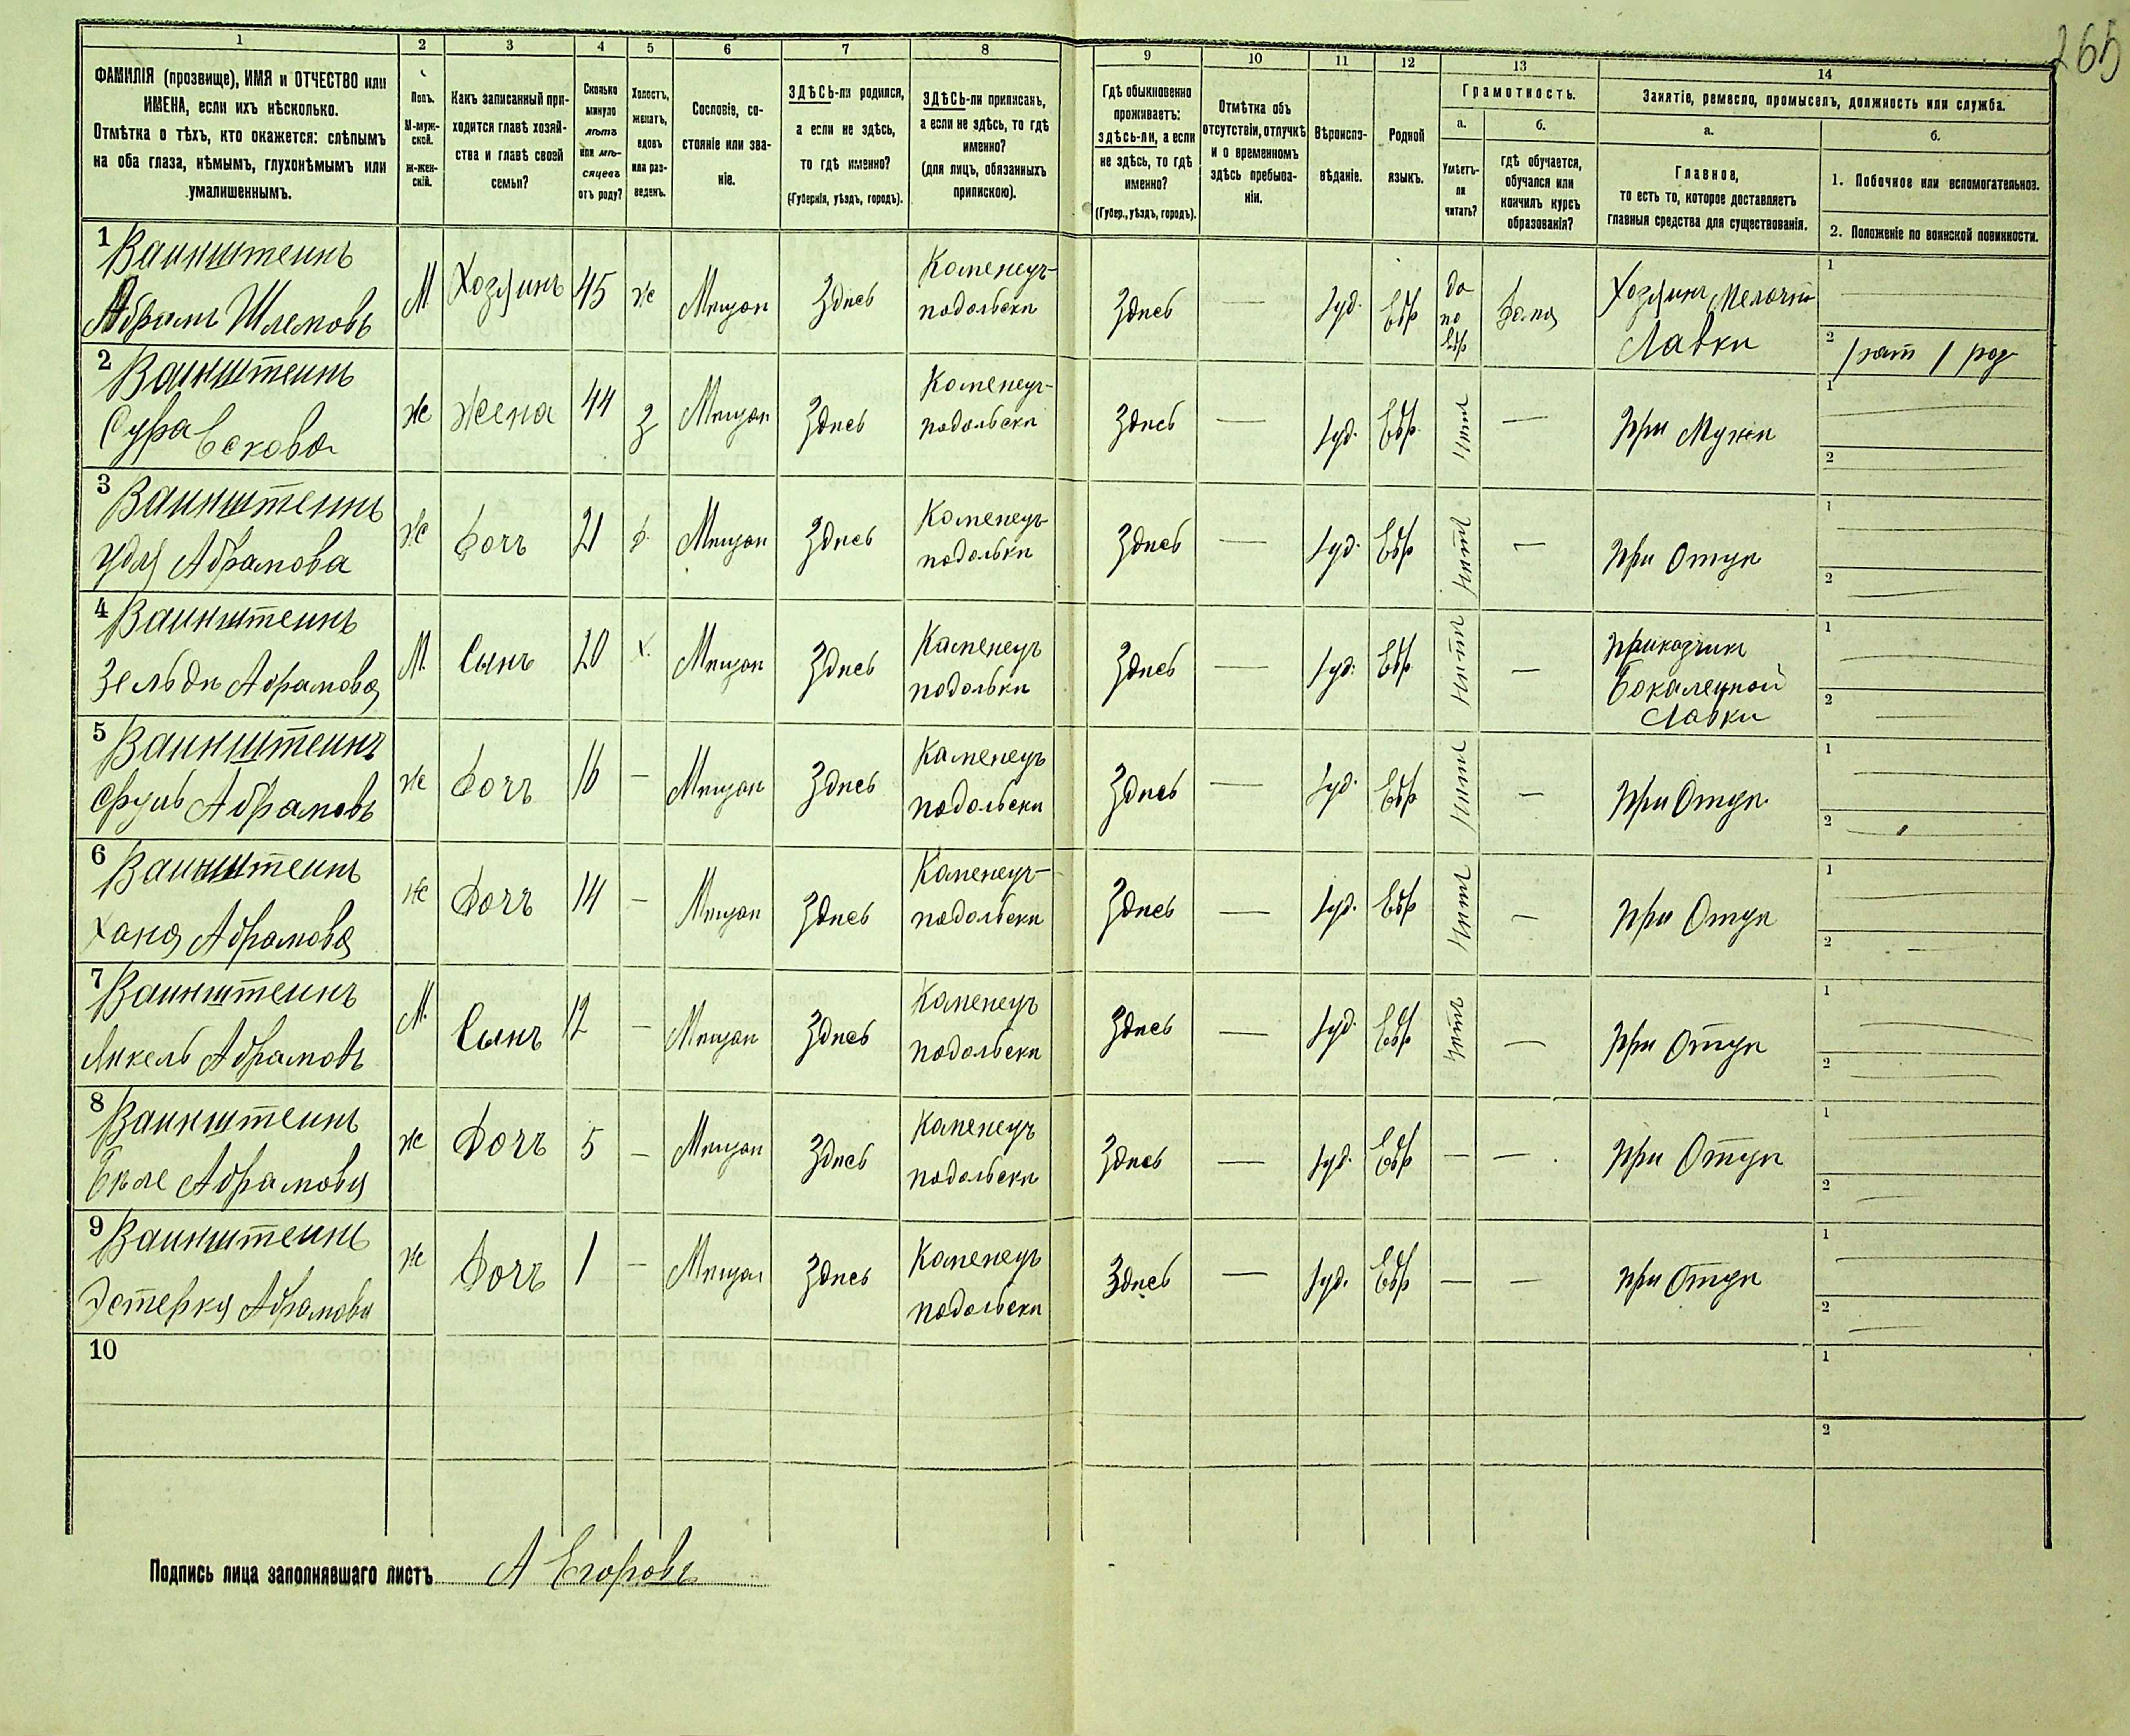 265
1 2 3 4 5 6 7 8 9 10 11 12 13 14
ФАМИЛІЯ (прозвище), ИМЯ и ОТЧЕСТВО или
ИМЕНА, если ихъ нѣсколько.
Отмѣтка о тѣхъ, кто окажется: слѣпымъ
на оба глаза, нѣмымъ, глухонѣмымъ или
умалишеннымъ.
Полъ.
М-муж-
ской.
ж-жен-
скій.
Какъ записанный при-
ходится главѣ хозяй-
ства и главѣ своей
семьи?
Сколько
минуло
лѣтъ
или мѣ-
сяцевъ
отъ роду?
Холостъ,
женатъ,
вдовъ
или раз-
веденъ.
Сословіе, со-
стояніе или зва-
ніе.
ЗДѢСЬ-ли родился,
а если не здѣсь,
то гдѣ именно?
(Губернія, уѣздъ, городъ).
ЗДѢСЬ-ли приписанъ,
а если не здѣсь, то гдѣ
именно?
(для лицъ, обязанныхъ
припискою).
Гдѣ обыкновенно
проживаетъ:
здѣсь-ли, а если
не здѣсь, то гдѣ
именно?
(Губер., уѣздъ, городъ).
Отмѣтка объ
отсутствіи, отлучкѣ
и о временномъ
здѣсь пребыва-
ніи.
Вѣроиспо-
вѣданіе.
Родной
языкъ.
Грамотность.
а.
Умѣетъ-
ли
читать?
б.
гдѣ обучается,
обучался или
кончилъ курсъ
образованія?
Занятіе, ремесло, промыселъ, должность или служба.
а.
Главное,
то есть то, которое доставляетъ
главныя средства для существованія.
б.
1. Побочное или вспомогательное.
2. Положеніе по воинской повинности.
1 Ваинштеинъ
Абрамъ Шлемовъ
М. Хозяинъ 45 ж Мѣщан Здѣсь
Каменецъ-
подольски
Здѣсь — Іуд. Евр
да
по
Евр
дома
Хозяинъ Мелочн
Лавки
1
2
2 Ваинштеинъ
Сура
ж жена 44 з Мѣщан Здѣсь
Каменецъ-
подольски
Здѣсь — Іуд. Евр. нѣт —
При Мужѣ
1
2
3 Ваинштеинъ
Удя Абрамова
ж дочь 21 д. Мѣщан Здѣсь
Каменецъ
подольки
Здѣсь — Іуд. Евр нѣт —
При Отцѣ
1
2
4 Ваинштеинъ
Зельдн Абрамова
М. Сынъ 20 х. Мѣщан Здѣсь
Каменецъ
подольки
Здѣсь — Іуд. Евр. нѣт —
Приказчик
Бокалецной
Лавки
1
2
5 Ваинштеинъ
Сруль Абрамовъ
ж дочъ 16 — Мѣщан Здѣсь
Каменецъ
подольски
Здѣсь — Іуд. Евр нѣт —
При Отцѣ
1
2
6 Ваинштеинъ
Хана Абрамова
ж дочъ 14 — Мѣщан Здѣсь
Каменецъ-
подольски
Здѣсь — Іуд. Евр нѣт —
При Отцѣ
1
2
7 Ваинштеинъ
Янкель Абрамовъ
М. Сынъ 12 — Мѣщан Здѣсь
Каменецъ
подольски
Здѣсь — Іуд. Евр нѣт —
При Отцѣ
1
2
8 Ваинштеинъ
Беле Абрамова
ж дочъ 5 — Мѣщан Здѣсь
Каменецъ
подольски
Здѣсь — Іуд. Евр — —
При Отцѣ
1
2
9 Ваинштеинъ
Эстерка Абрамова
ж дочъ 1 — Мѣщан Здѣсь
Каменецъ
подольски
Здѣсь — Іуд. Евр — —
При Отцѣ
1
2
10
1
2
Подпись лица заполнявшаго листъ А Егоровъ